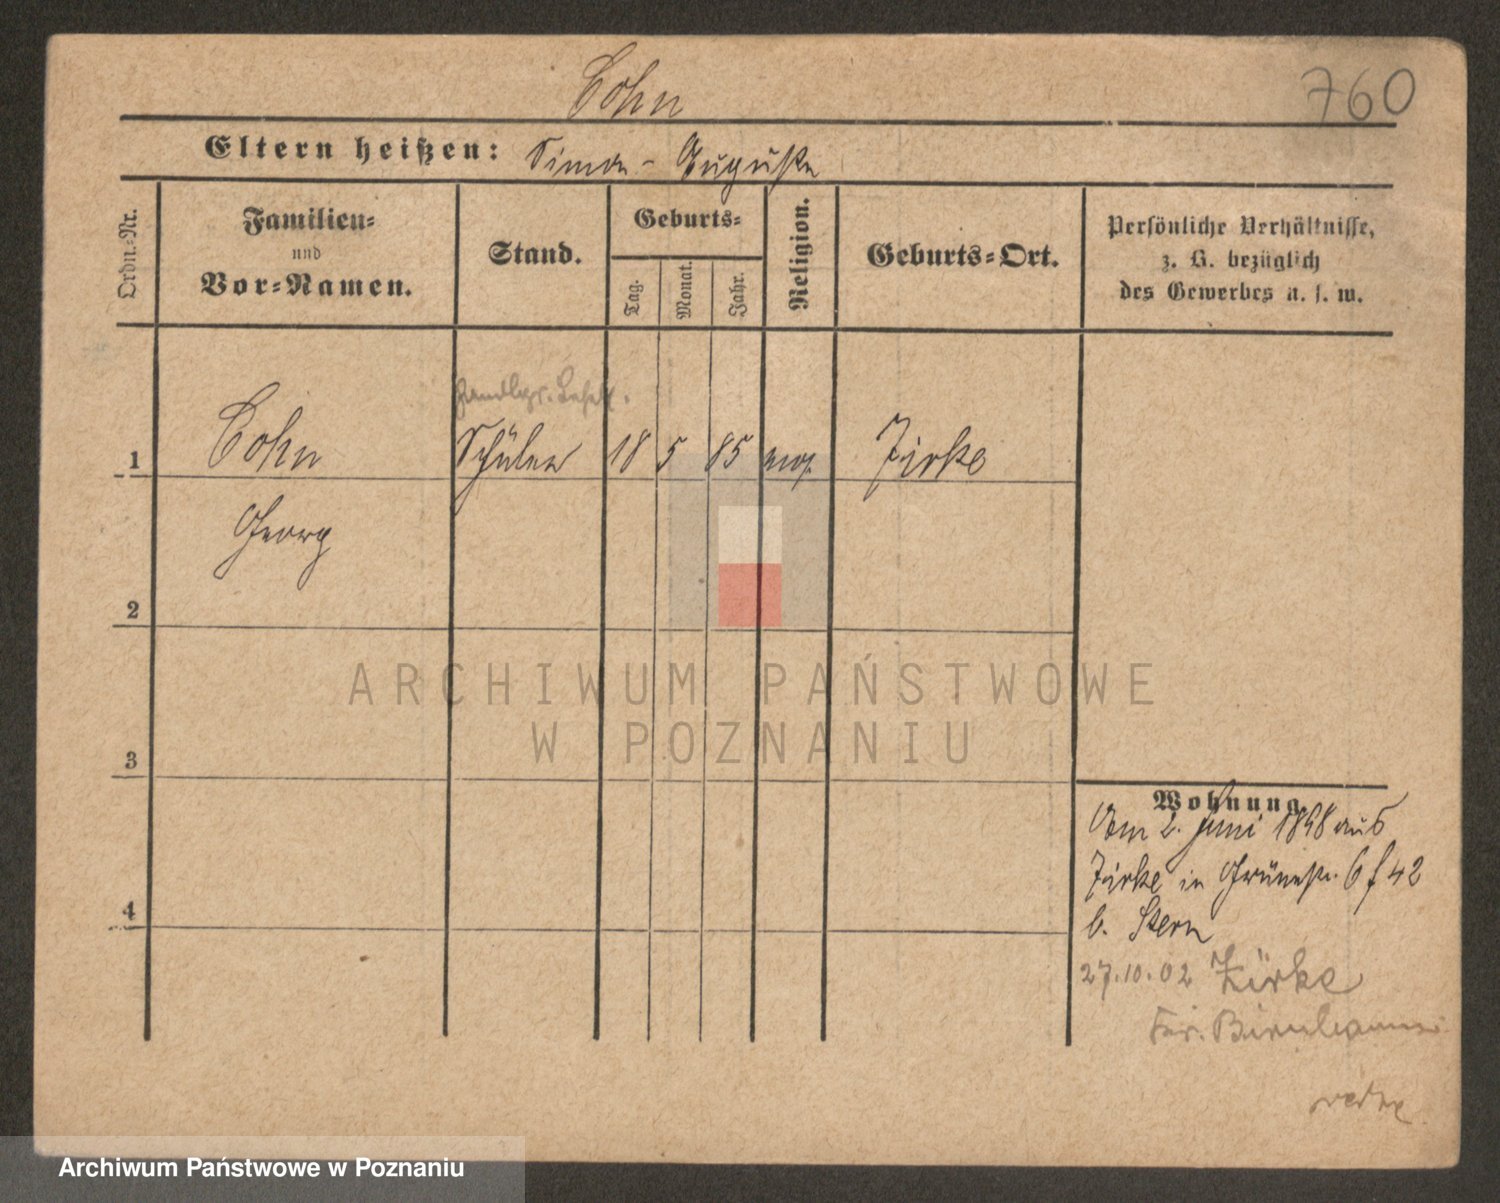 Cohn
760
Eltern heißen: Simon - Auguste
Ordn.-Nr.
Familien-
und
Vor-Namen.
Stand.
Geburts-
Tag.
Monat.
Jahr.
Religion.
Geburts-Ort.
Persönliche Verhältnisse,
z. B. bezüglich
des Gewerbes u. s. w.
Handlgs.
1 Cohn Schüler 18 5 85 mos. Zirke
Georg
2
3
4
Wohnung.
Am 2. Juni 1898 aus
Zirke in Grünestr. 6 f 42
b. Stern
27.10.02 Zirke
ARCHIWUM PAŃSTWOWE
W POZNANIU
Archiwum Państwowe w Poznaniu